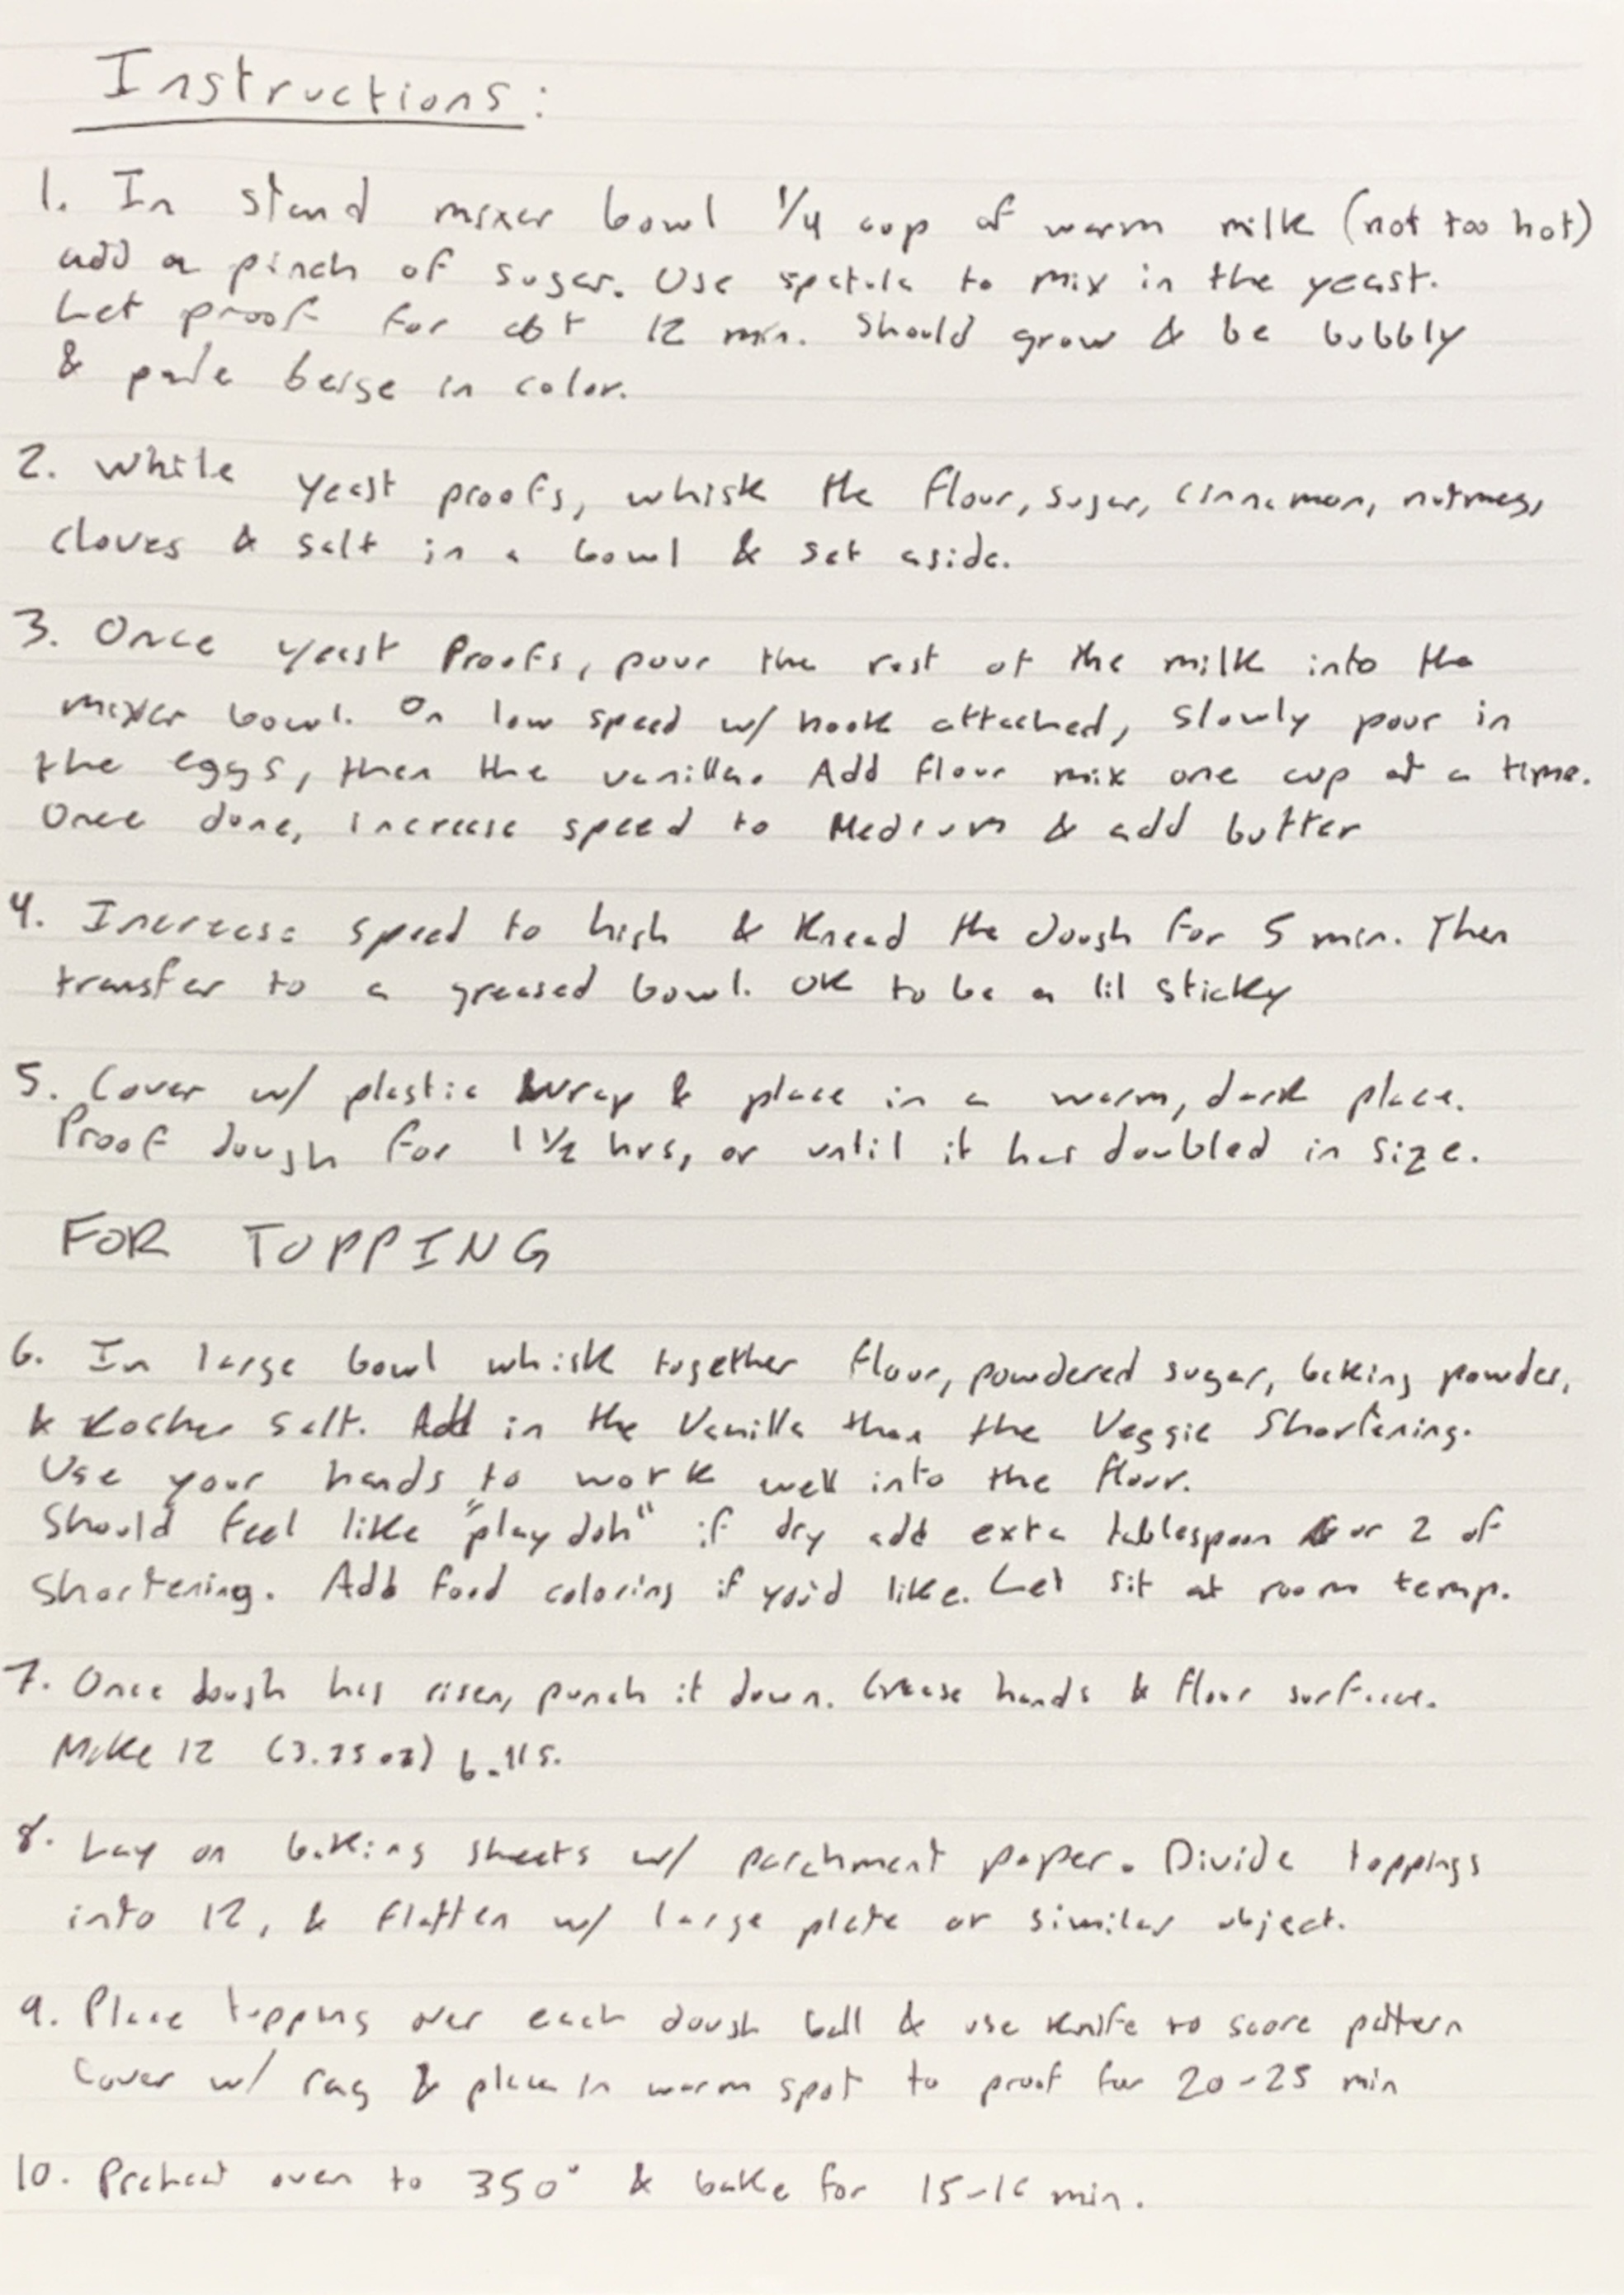 Instructions:
1. In stand mixer bowl 1/4 cup of warm milk (not too hot)
add a pinch of sugar. Use spatula to mix in the yeast.
Let proof for abt 12 min. Should grow & be bubbly
& pale beige in color.
2. While yeast proofs, whisk the flour, sugar, cinnamon, nutmeg,
cloves & salt in a bowl & set aside.
3. Once yeast Proofs, pour the rest of the milk into the
mixer bowl. On low speed w/ hook attached, slowly pour in
the eggs, then the vanilla. Add flour mix one cup at a time.
Once done, increase speed to Medium & add butter
4. Increase speed to high & knead the dough for 5 min. Then
transfer to a greased bowl. OK to be a lil sticky
5. Cover w/ plastic wrap & place in a warm, dark place.
Proof dough for 1 1/2 hrs, or until it has doubled in size.
FOR TOPPING
6. In large bowl whisk together flour, powdered sugar, baking powder,
& Kosher Salt. Add in the Vanilla then the Veggie Shortening.
Use your hands to work well into the flour.
Should feel like "play doh" if dry add exta tablespoon or 2 of
Shortening. Add food coloring if you'd like. Let sit at room temp.
7. Once dough has risen, punch it down. Grease hands & flour surface.
Make 12 (3.25oz) balls.
8. Lay on baking sheets w/ parchment paper. Divide toppings
into 12, & flatten w/ large plate or similar object.
9. Place topping over each dough ball & use knife to score pattern
Cover w/ rag & place in warm spot to proof for 20-25 min
10. Preheat oven to 350° & bake for 15-16 min.